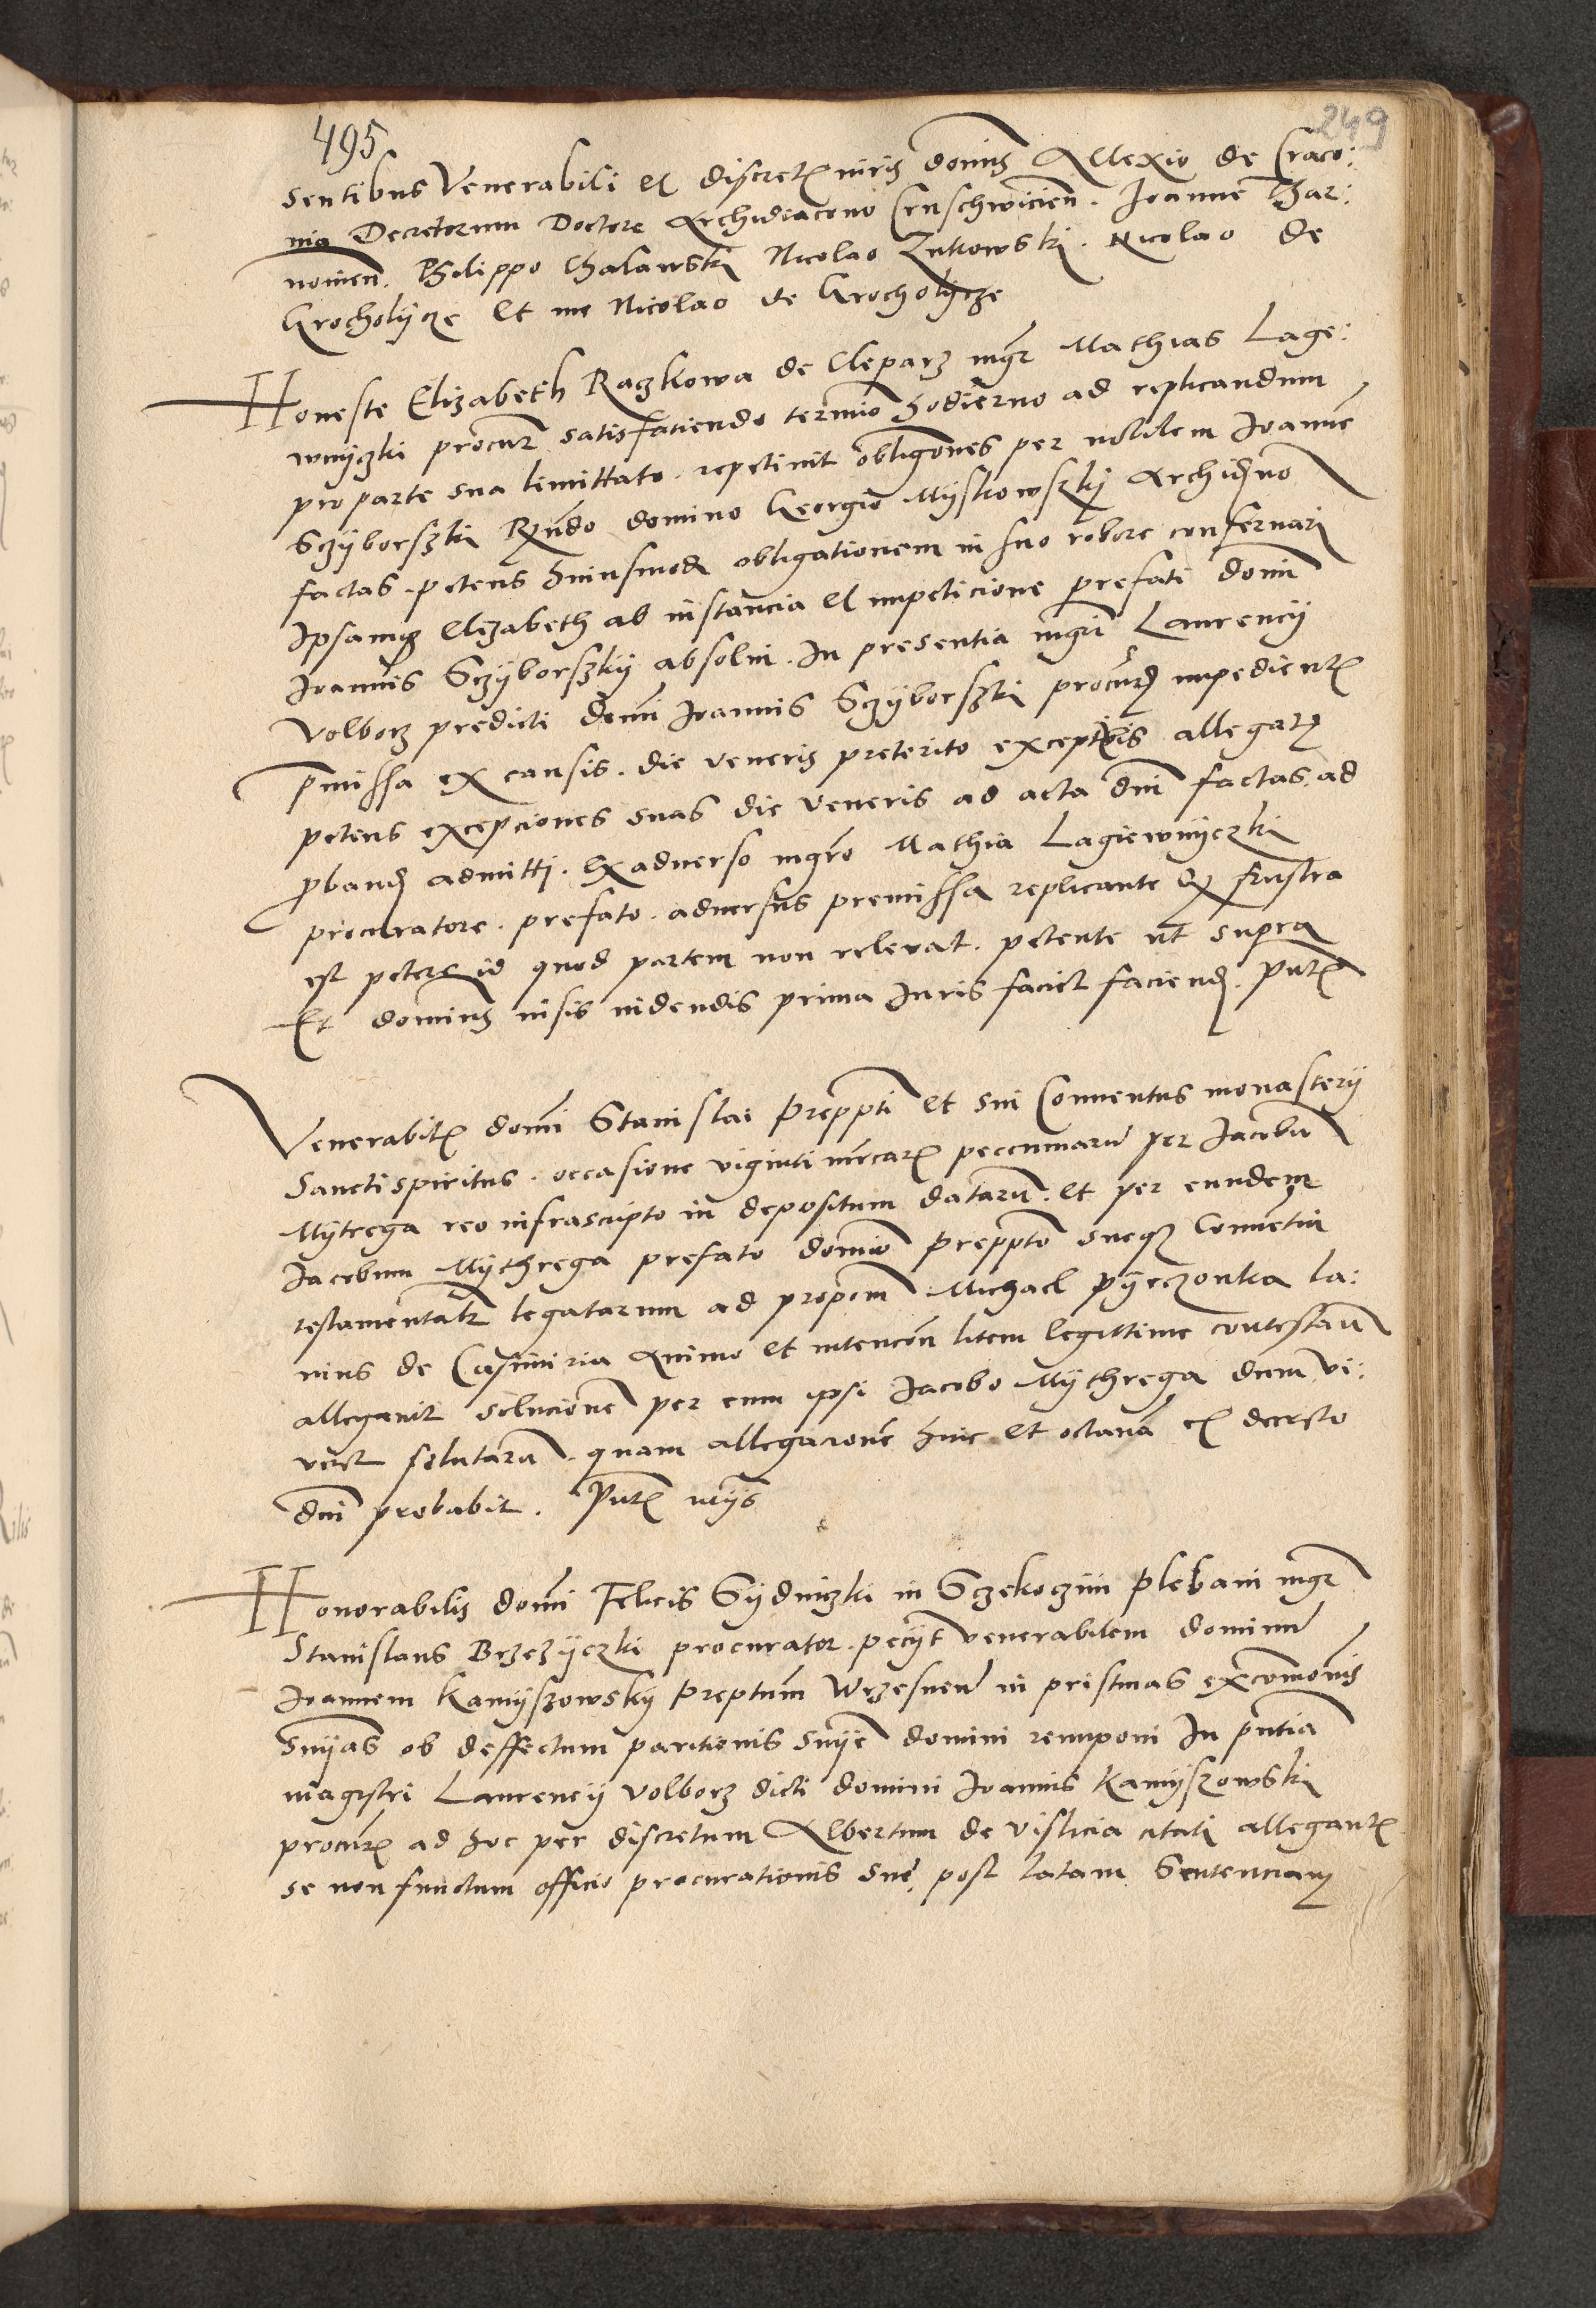 495
249
sentibus Venerabili et discret viris domis Allexio de Craco:
via Decretorum Doctore Archidiacono Cruschwicien. Joanne Thar:
novien. Philippo Chalawski Nicolao Zukowski. Nicolao de
Grocholycze Et me Nicolao de Grocholycze
Honeste Elizabeth Raczkowa de Cleparz mgr Mathias Lage:
wnyczki procur satisfaciendo termino hodierno ad replicandum
pro parte sua limittato. repetivit obligoones per nobilem Joanne
Sczyborszki Rndo domino Georgio Myskowszky Archidno
factas. petens huiusmodi obligationem in suo robore conservari
Ipsamq Elizabeth ab instancia et impeticione prefati domi
Joannis Sczyborszky absolvi. In presentia mgri Laurency
Volborz predicti domi Joannis Sczyborszki procur impedient
pmissa ex causis. die veneris preterito exceptivis allegat
petens excepciones suas die veneris ad acta dni factas. ad
pband admitti. Ex adverso mgro Mathia Lagiewnyczki
procuratore. prefato. adversus premissa replicante q frustra
est petere id quod partem non relevat. petente ut supra
Et dominus visis videndis prima Juris faciet faciend. Pnt
Venerabil domi Stanislai Preppti et sui Conventus monastery
Sancti spiritus. occasione viginti mrcar peccuniaru per Jacobu
Mytrega reo infrascripto in depositum dataru. et per eundem
Jacobum Mythrega prefato domio Preppto sueq Conventui
testamentalr legatarum ad propom Michael Pyeczonka la:
nius de Casimiria Animo et intencon litem legittime contestan
allegavit solucione per eum ipsi Jacobo Mythrega dum vi:
veret solutaru. quam allegacione hinc et octava ex decreto
dni probabit. Pnt ... 
Honorabilis domi Felicis Sydniczki in Sczekoczini plebani mgr
Stanislaus Brzezyczki procurator. pecyt venerabilem dominu
Joannem Kamyszowsky Preptum Wrzesnen in pristinas excomonis
snyas ob deffectum paritionis snye domini remponi In pntia
magistri Laurency Volborz dicti domini Joannis Kamyszowski
procur ad hoc per discretum Albertum de Vislicia citati allegant
se non functum officio procurationis sue, post latam Sentenciam